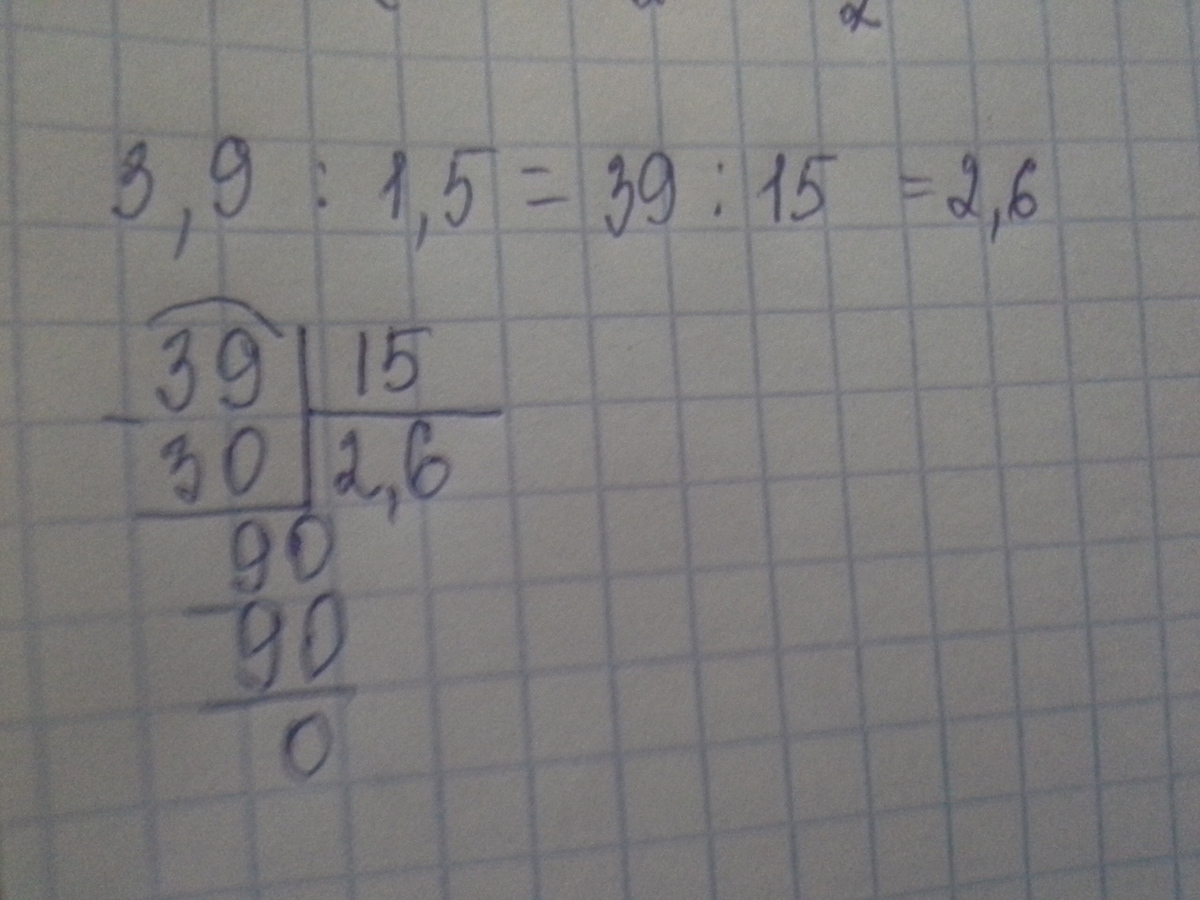 3,9 : 1,5 = 39 : 15 = 2,6
39 | 15
- 30 | 2,6
90
- 90
0